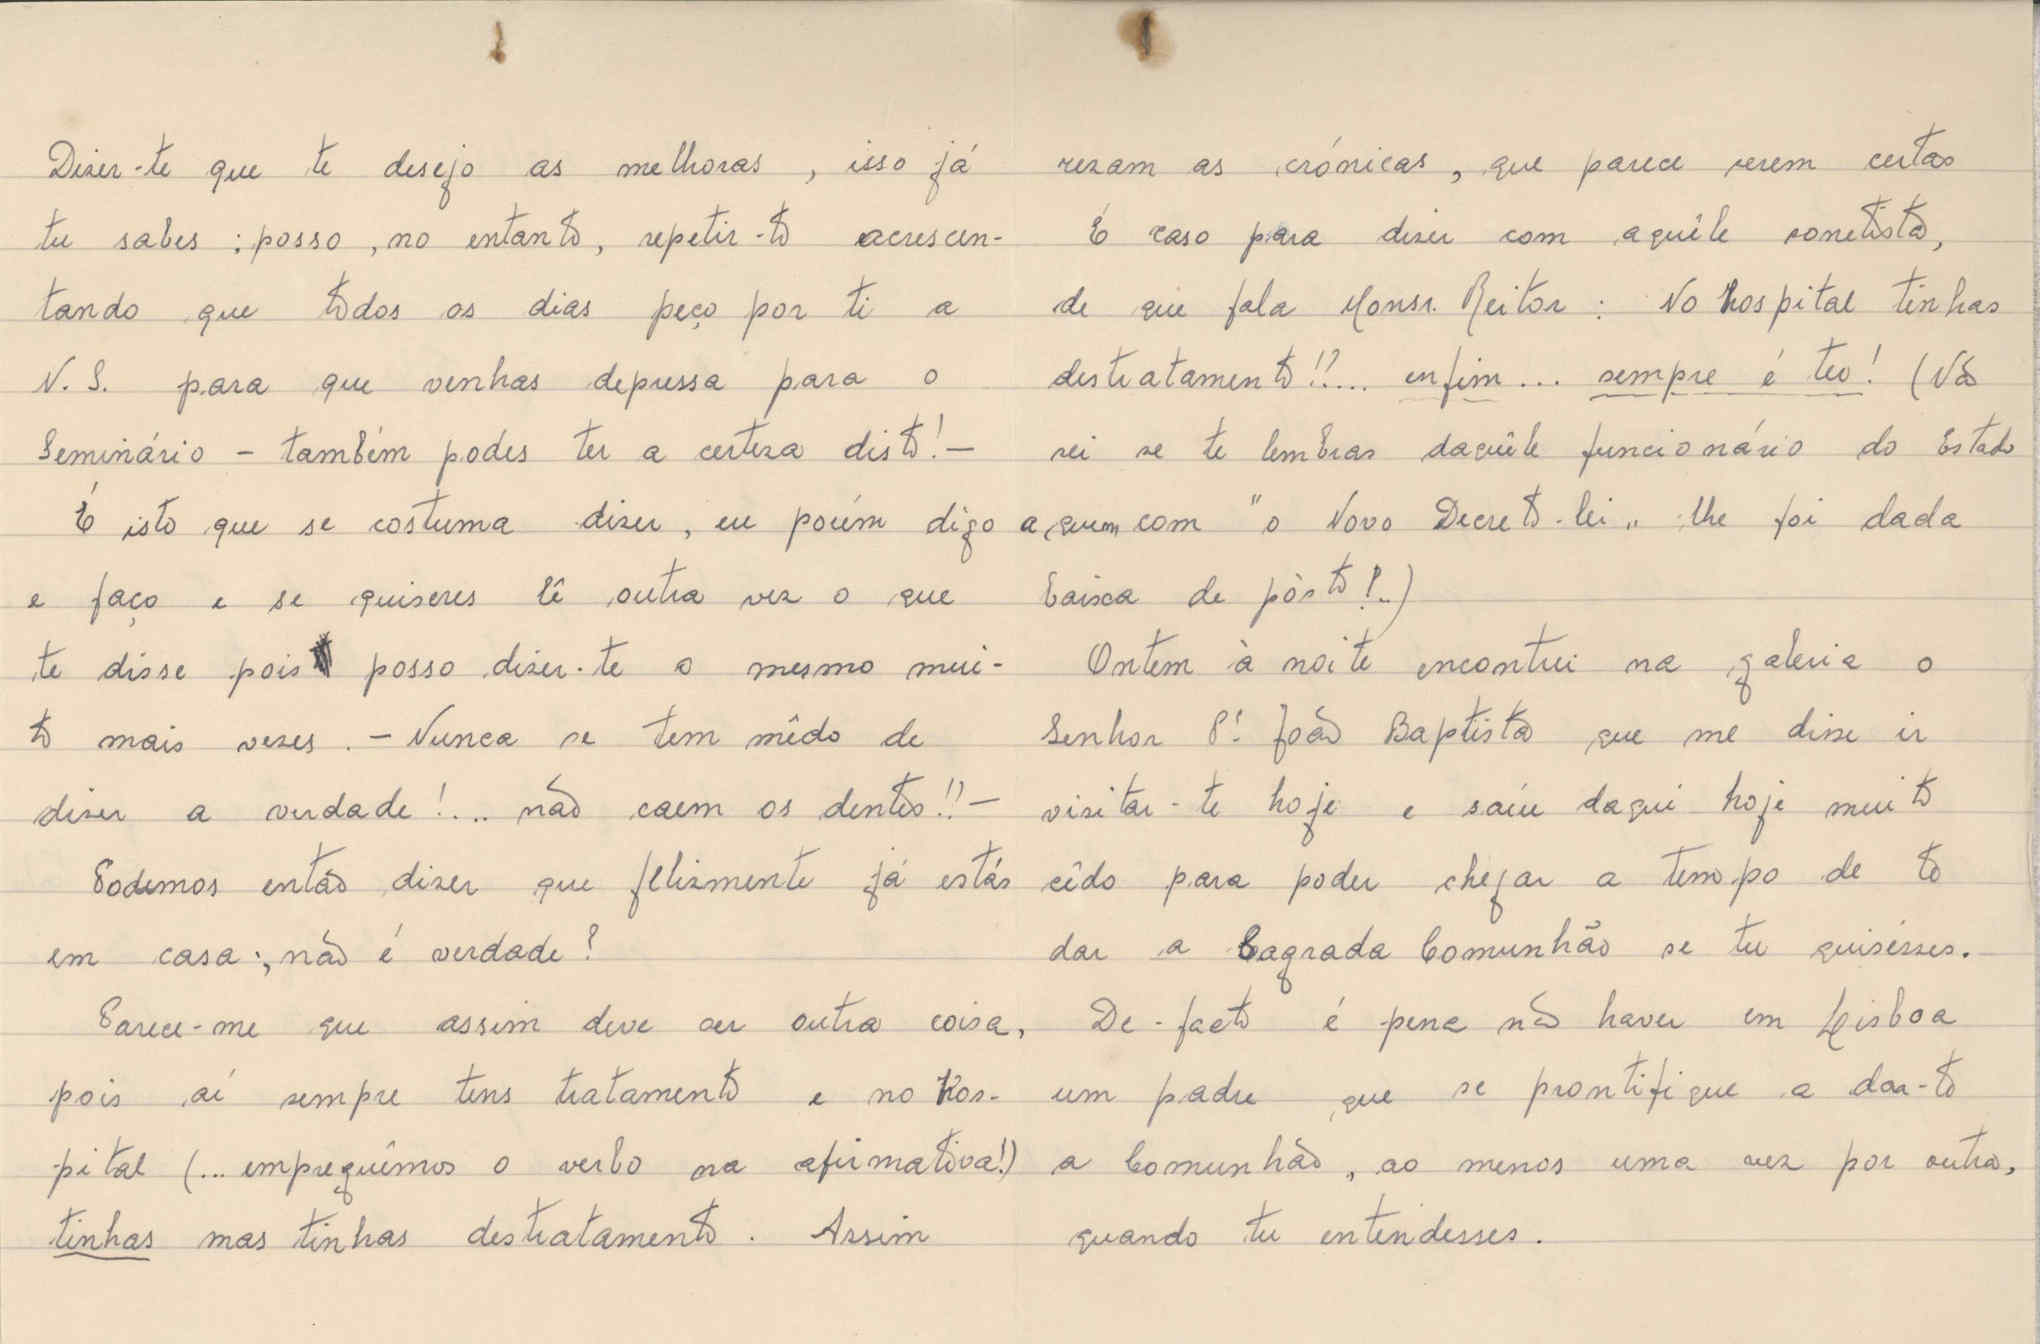 Dizer-te que te desejo as melhoras, isso já
tu sabes; posso, no entanto, repetir-to acrescen-
tando que todos os dias peço por ti a
N. S. para que venhas depressa para o
Seminário - também podes ter a certeza disto! -
É isto que se costuma dizer, eu porém digo
e faço e se quiseres lê outra vez o que
te disse pois posso dizer-te o mesmo mui-
to mais vezes. - Nunca se tem mêdo de
dizer a verdade!... não caem os dentes!! -
Podemos então dizer que felizmente já estás
em casa; não é verdade?
Parece-me que assim deve ser outra coisa,
pois aí sempre tens tratamento e no hos-
pital (... empreguêmos o verbo na afirmativa!)
tinhas mas tinhas destratamento. Assim
rezam as crónicas, que parece serem certas
É caso para dizer com aquêle sonetista,
de que fala Monsr. Reitor: No hospital tinhas
destratamento!?... enfim... sempre é teu! (Não
sei se te lembras daquêle funcionário do Estado
a quem com "o Novo Decreto-lei" lhe foi dada
baixa de pôsto!..)
Ontem à noite encontrei na galeria o
Senhor P.e João Baptista que me disse ir
visitar-te hoje e saíu daqui hoje muito
cêdo para poder chegar a tempo de to
dar a Sagrada Comunhão se tu quisésses.
De-facto é pena não haver em Lisboa
um padre que se prontifique a dar-to
a Comunhão, ao menos uma vez por outra,
quando tu entendesses.